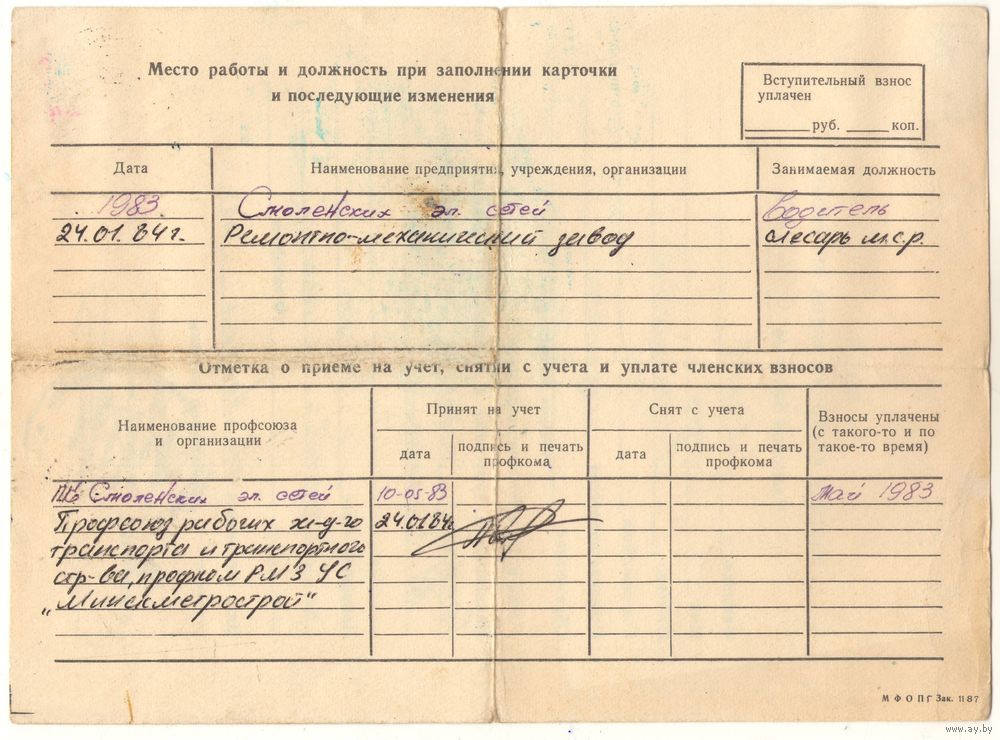 Место работы и должность при заполнении карточки
и последующие изменения
Вступительный взнос
уплачен
руб. коп.
Дата Наименование предприятия, учреждения, организации Занимаемая должность
1983 Смоленских эл. сетей Водитель
24.01.84г. Ремонтно-механический завод слесарь м.с.р.
Отметка о приеме на учет, снятии с учета и уплате членских взносов
Наименование профсоюза
и организации
Принят на учет
Снят с учета
Взносы уплачены
(с такого-то и по
такое-то время)
дата подпись и печать
профкома
дата подпись и печать
профкома
Смоленских эл. сетей 10-05-83 Май 1983
Профсоюз рабочих ж-д-го 24.01.84г
транспорта и транспортного
стр-ва, профком РМЗ УС
„Минскметрострой"
МФОПГ Зак. 1187
www.ay.by